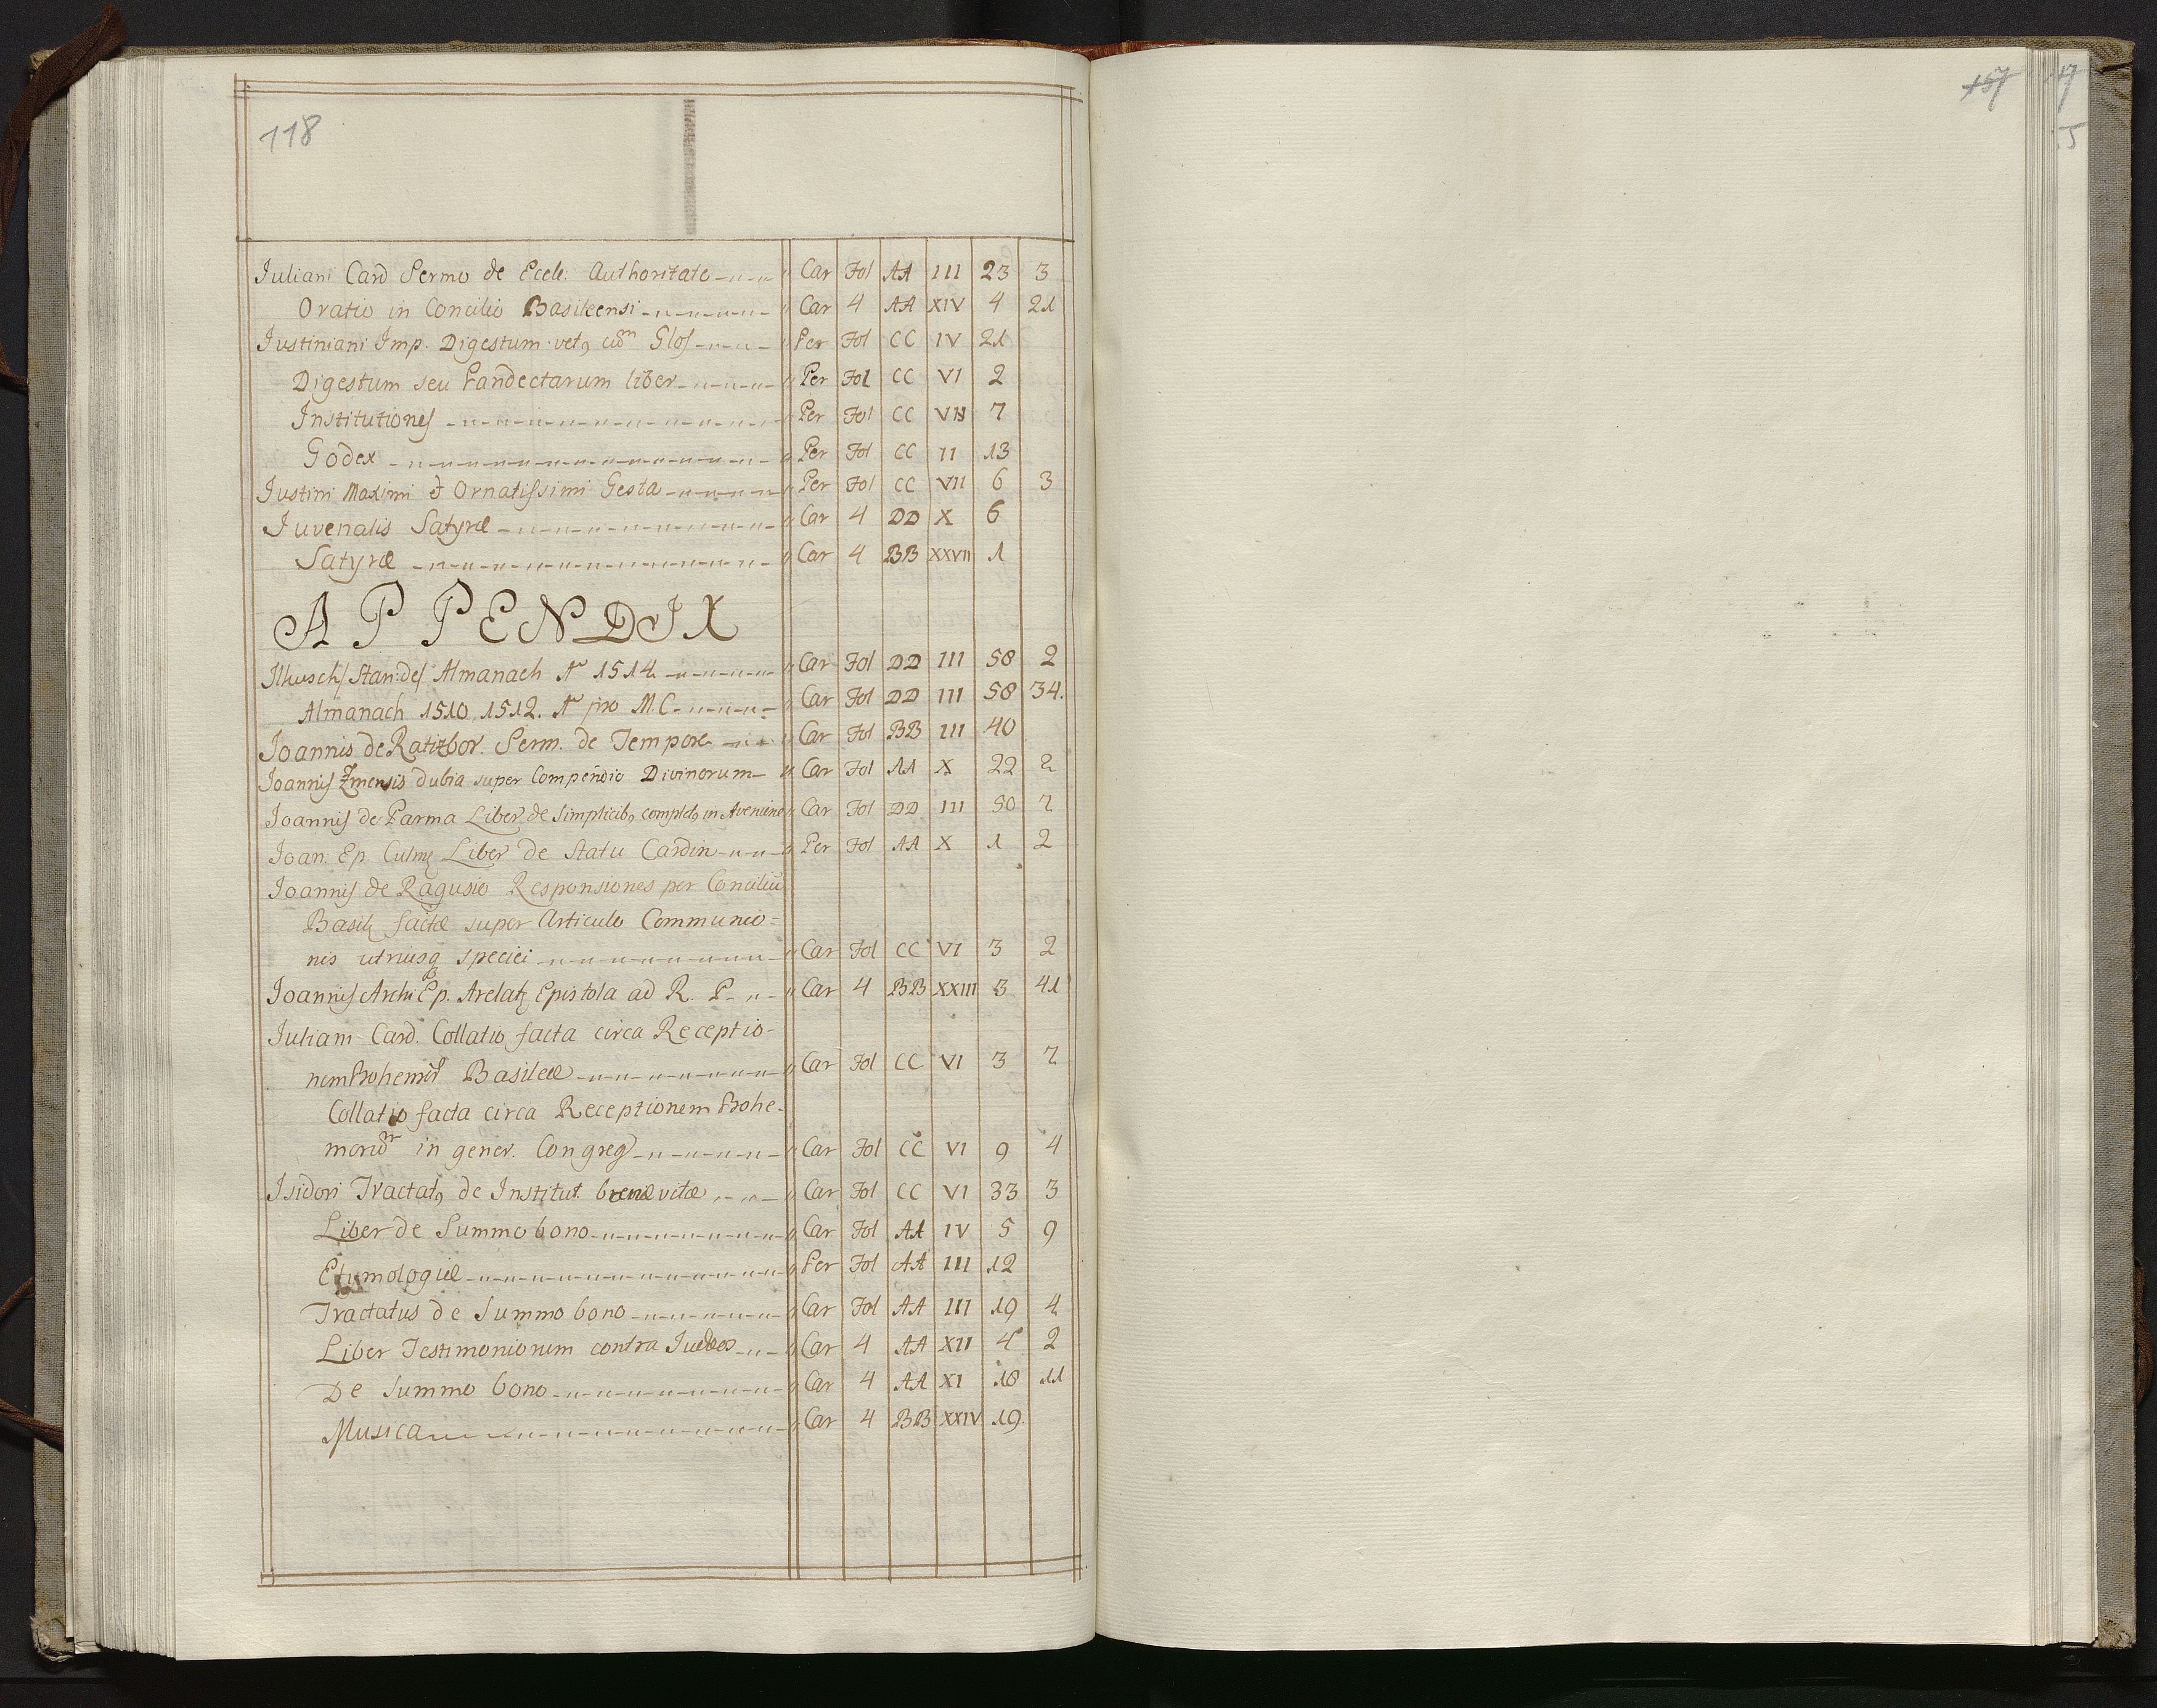 118
Iuliani Card Sermo de Eccle. Authoritate Car Fol AA III 23 3
Oratio in Concilio Basileensi Car 4 AA XIV 4 21
Iustiniani Imp. Digestum vet9 cum Glos Per Fol CC IV 21
Digestum seu Pandectarum liber Per Fol CC VI 2
Institutiones Per Fol CC VII 7
Codex Per Fol CC II 13
Iustini Maximi & Ornatissimi Gesta Per Fol CC VII 6 3
Iuvenalis Satyræ Car 4 DD X 6
Satyræ Car 4 BB XXVII 1
APPENDIX
Ilkusch Stan: de Almanach Aº 1514 Car Fol DD III 58 2
Almanach 1510, 1512. Aº pro M.C. Car Fol DD III 58 34.
Joannis de Ratitzbor. Serm. de Tempore Car Fol BB III 40
Joannis dubia super Compendio Divinorum Car Fol AA X 22 2
Joannis de Parma Liber de simplicib9 complet9 in Avenione Car Fol DD III 50 7
Joan: Ep. Culmȩ Liber de Statu Cardin Per Fol AA X 1 2
Joannis de Ragusio Responsiones per Conciliū
Basilȩ factæ super Articulo Communio=
nis utriusq speciei Car Fol CC VI 3 2
Joannis Archi Ep. Arelatȩ Epistola ad R. P. Car 4 BB XXIII 3 41
Iuliani Card. Collatio facta circa Receptio-
nem Bohemor Basileæ Car Fol CC VI 3 7
Collatio facta circa Receptionem Bohe-
morum in gener. Congreg Car Fol CC VI 9 4
Isidori Tractat9 de Institut bonæ vitæ Car Fol CC VI 33 3
Liber de Summo bono Car Fol AA IV 5 9
Etymologiæ Per Fol AA III 12
Tractatus de Summo bono Car Fol AA III 19 4
Liber Testimoniorum contra Iudæos Car 4 AA XII 4 2
De Summo bono Car 4 AA XI 18 11
Musica Car 4 BB XXIV 19.
157